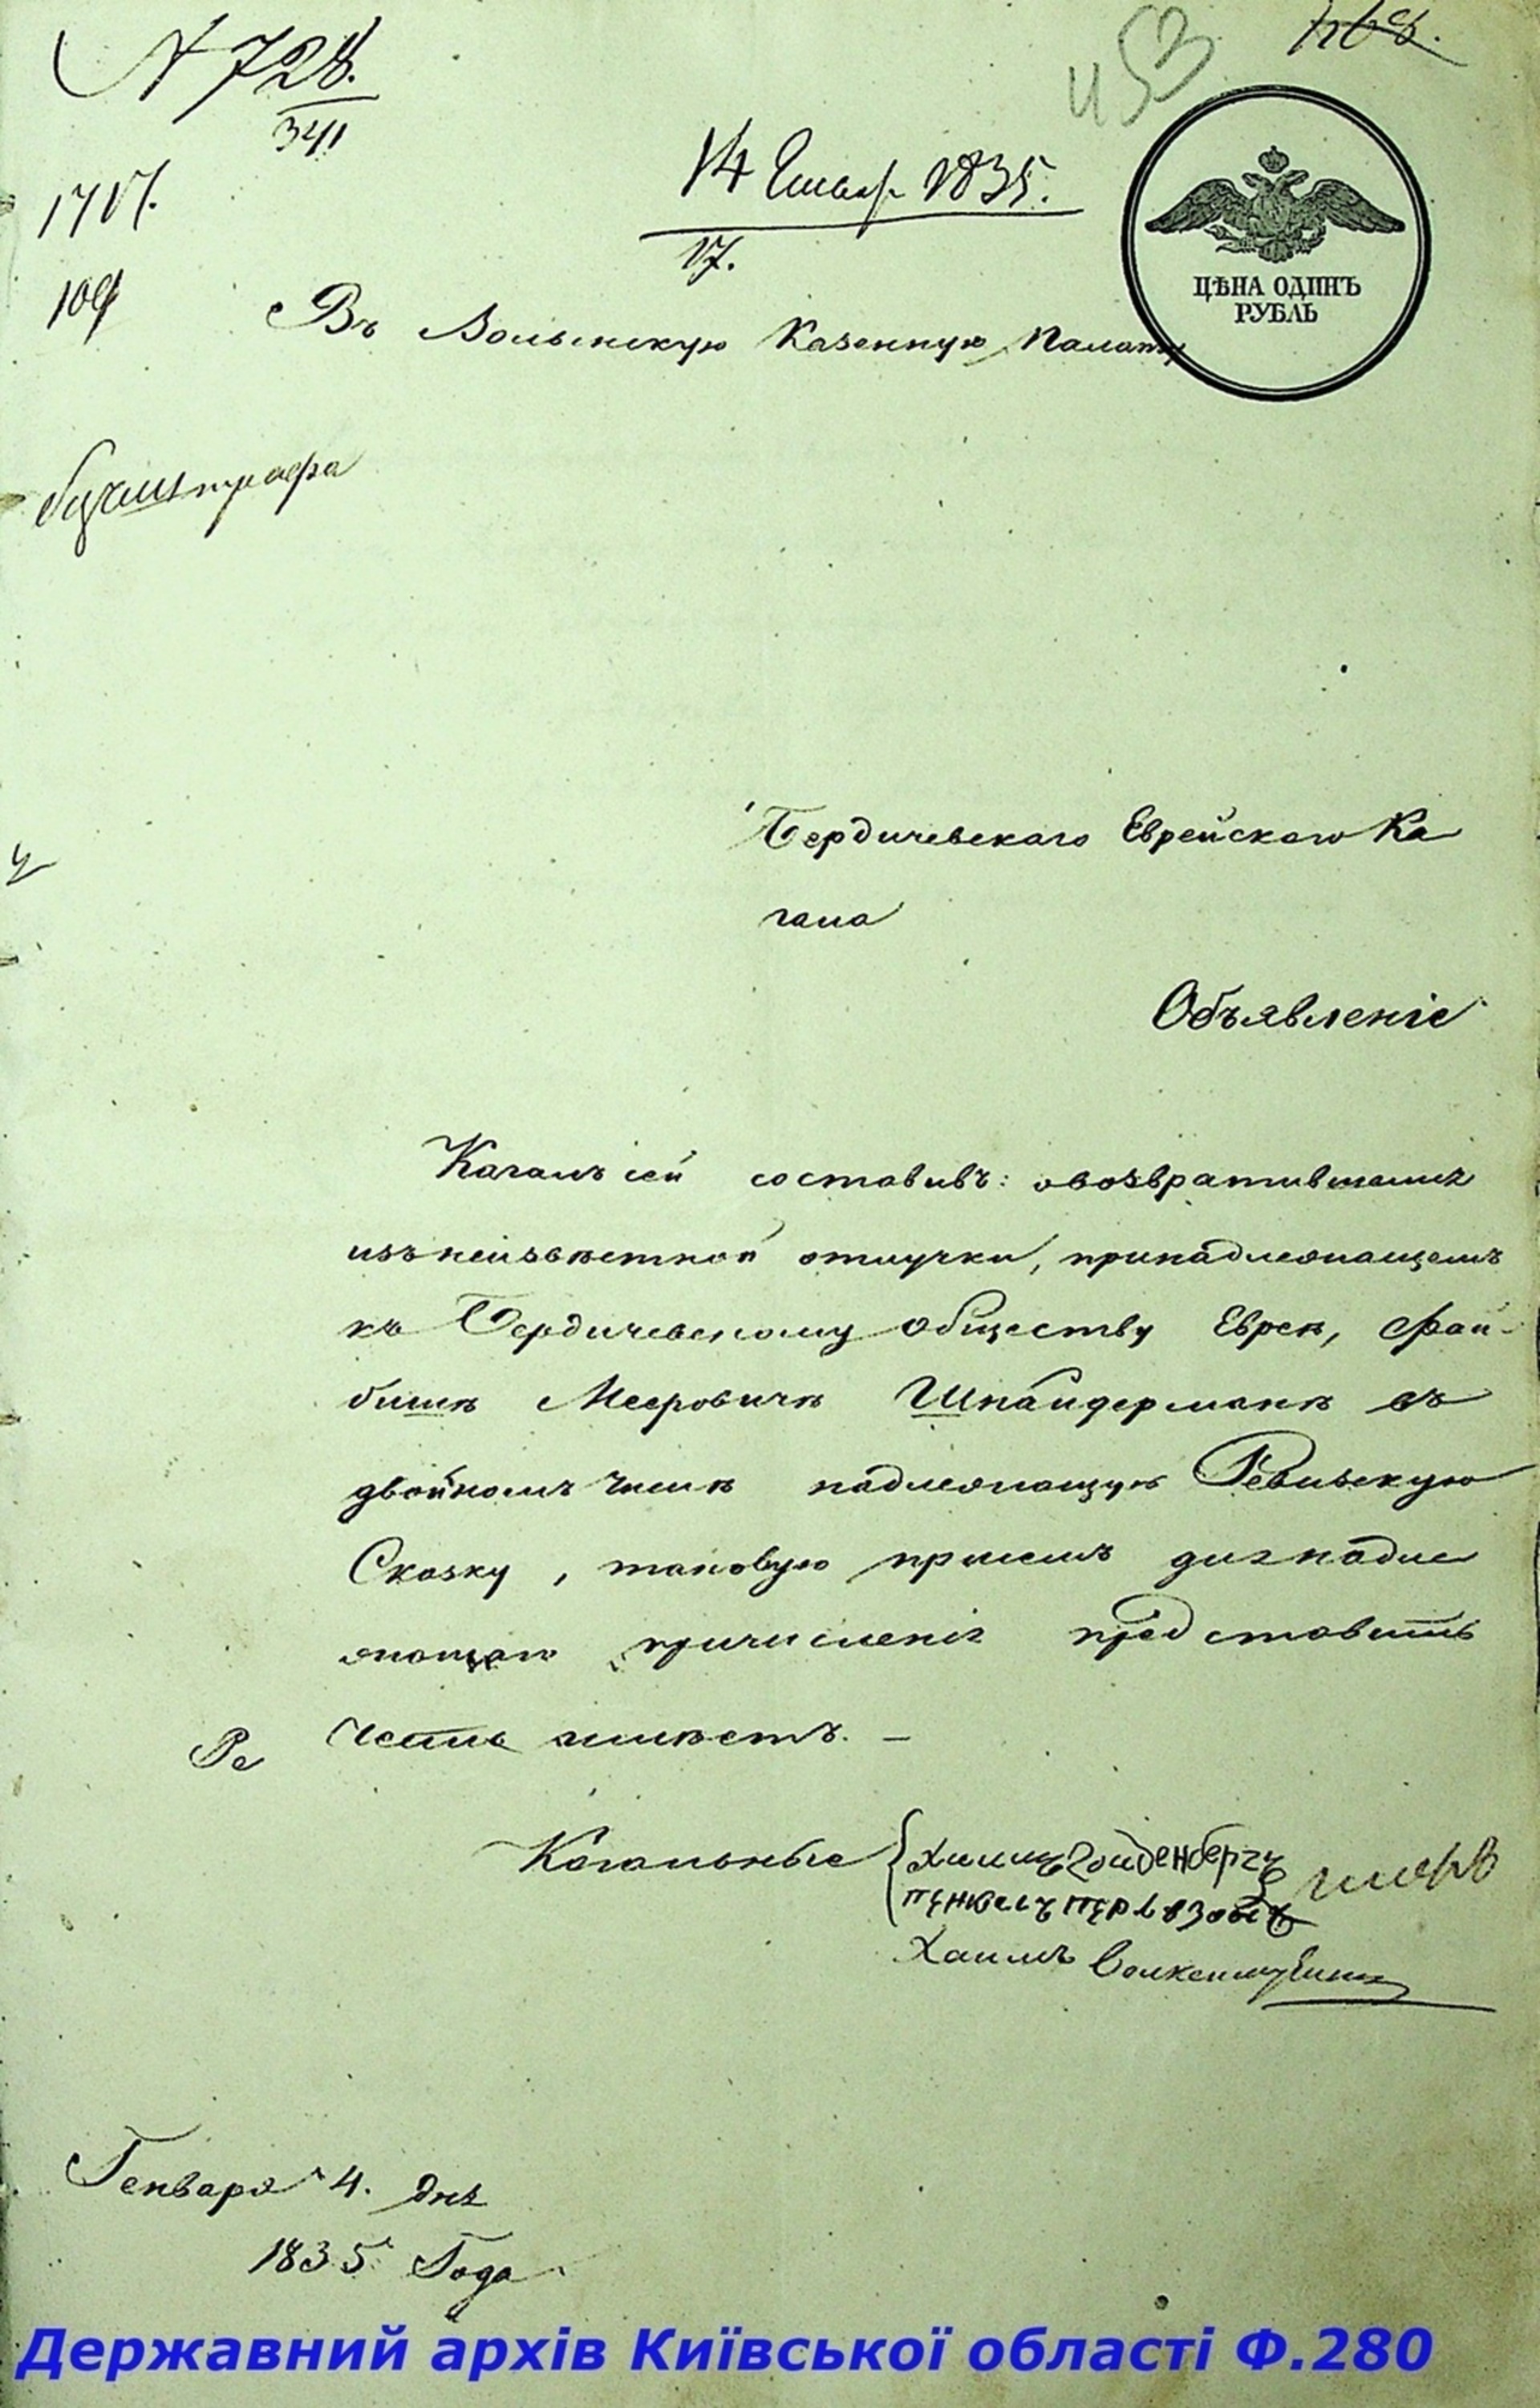 № 728.
3411
53
14 Генвар 1835.
17.
109
ЦѢНА ОДИНЪ
РУБЛЬ
Въ Волынскую Казенную Палату
безъ штрафа
Бердичевскаго Еврейскаго Ка
гала
Объявленіе
Кагалъ сей составивъ: овозвратившемся
изънеизвѣстной отлучки, принадлежащемъ
къ Бердичевскому обществу Еврея, Фай-
бишѣ Мееровичѣ Шнайдерманѣ въ
двойномъ числѣ надлежащую Ревизскую
Сказку, таковую присемъ для надле
жащаго причисленія представить
Честь имѣетъ. –
Ре
Кагальные
Хаимъ
Генваря 4. дня
1835 Года
Державний архів Київської області Ф.280